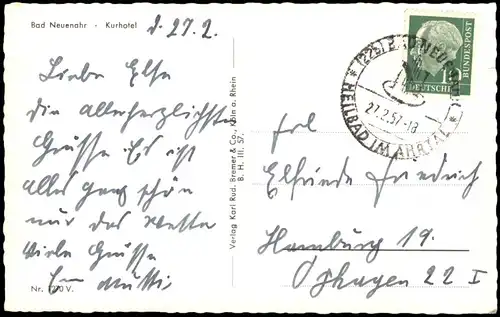 Bad Neuenahr - Kurhotel
d. 27.2.
Liebe Else
die allerherzlichsten
Grüsse Es ist
alles ganz schön
nur das Wetter
Viele Grüsse
Mutti
Nr. 1270 V.
Verlag Karl Rud. Bremer & Co., Köln a. Rhein
B. H. III. 57.
DEUTSCHE BUNDESPOST
(22b) BAD NEUENAHR
27.2.57-18
HEILBAD IM AHRTAL
Frl
Elfriede Friedrich
Hamburg 19.
22 I